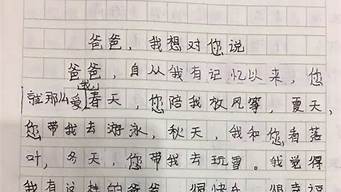 爸爸，我想对您说
爸爸，自从我有记忆以来，您
就那么爱我春天，您陪我放风筝，夏天，
您带我去游泳，秋天，我和您看落
叶，冬天，您带我去玩雪。我觉得
我有这样的爸爸，很快乐，很幸福